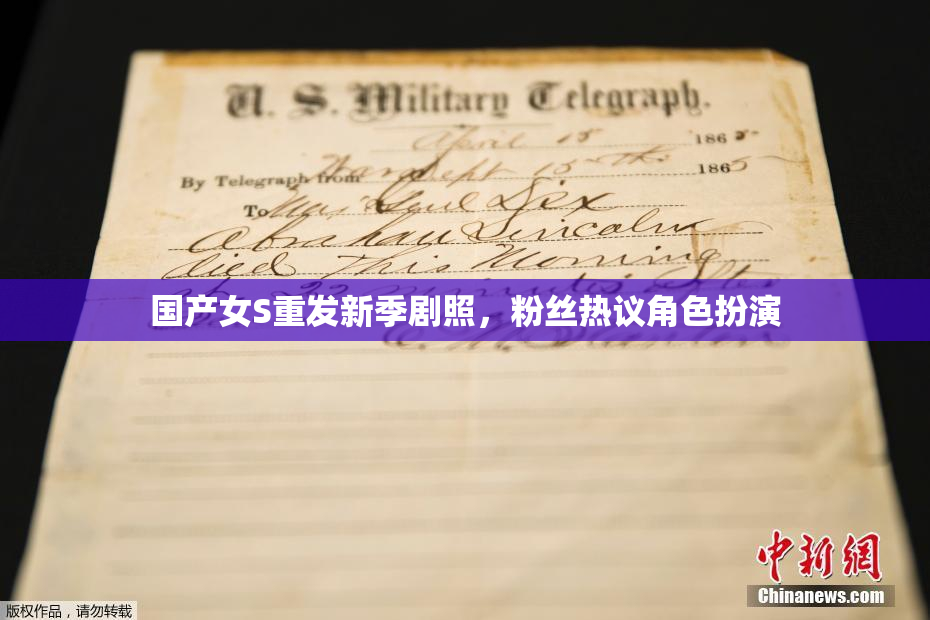 U. S. Military Telegraph.
April 15 1865
By Telegraph from War Dept 15th 1865
To Maj Genl Dix
Abraham Lincoln
died This Morning
at 22 minutes after
国产女S重发新季剧照，粉丝热议角色扮演
E. M. Stanton
中新网
Chinanews.com
版权作品，请勿转载